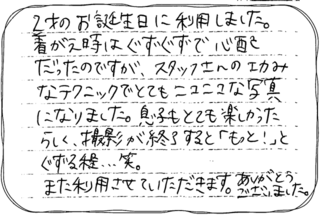 2才のお誕生日に利用しました。
着がえ時はぐずぐずで心配
だったのですが、スタッフさんの巧み
なテクニックでとてもニコニコな写真
になりました。息子もとても楽しかった
らしく、撮影が終了すると「もっと!」と
ぐずる程…笑。
また利用させていただきます。ありがとう
ございました。